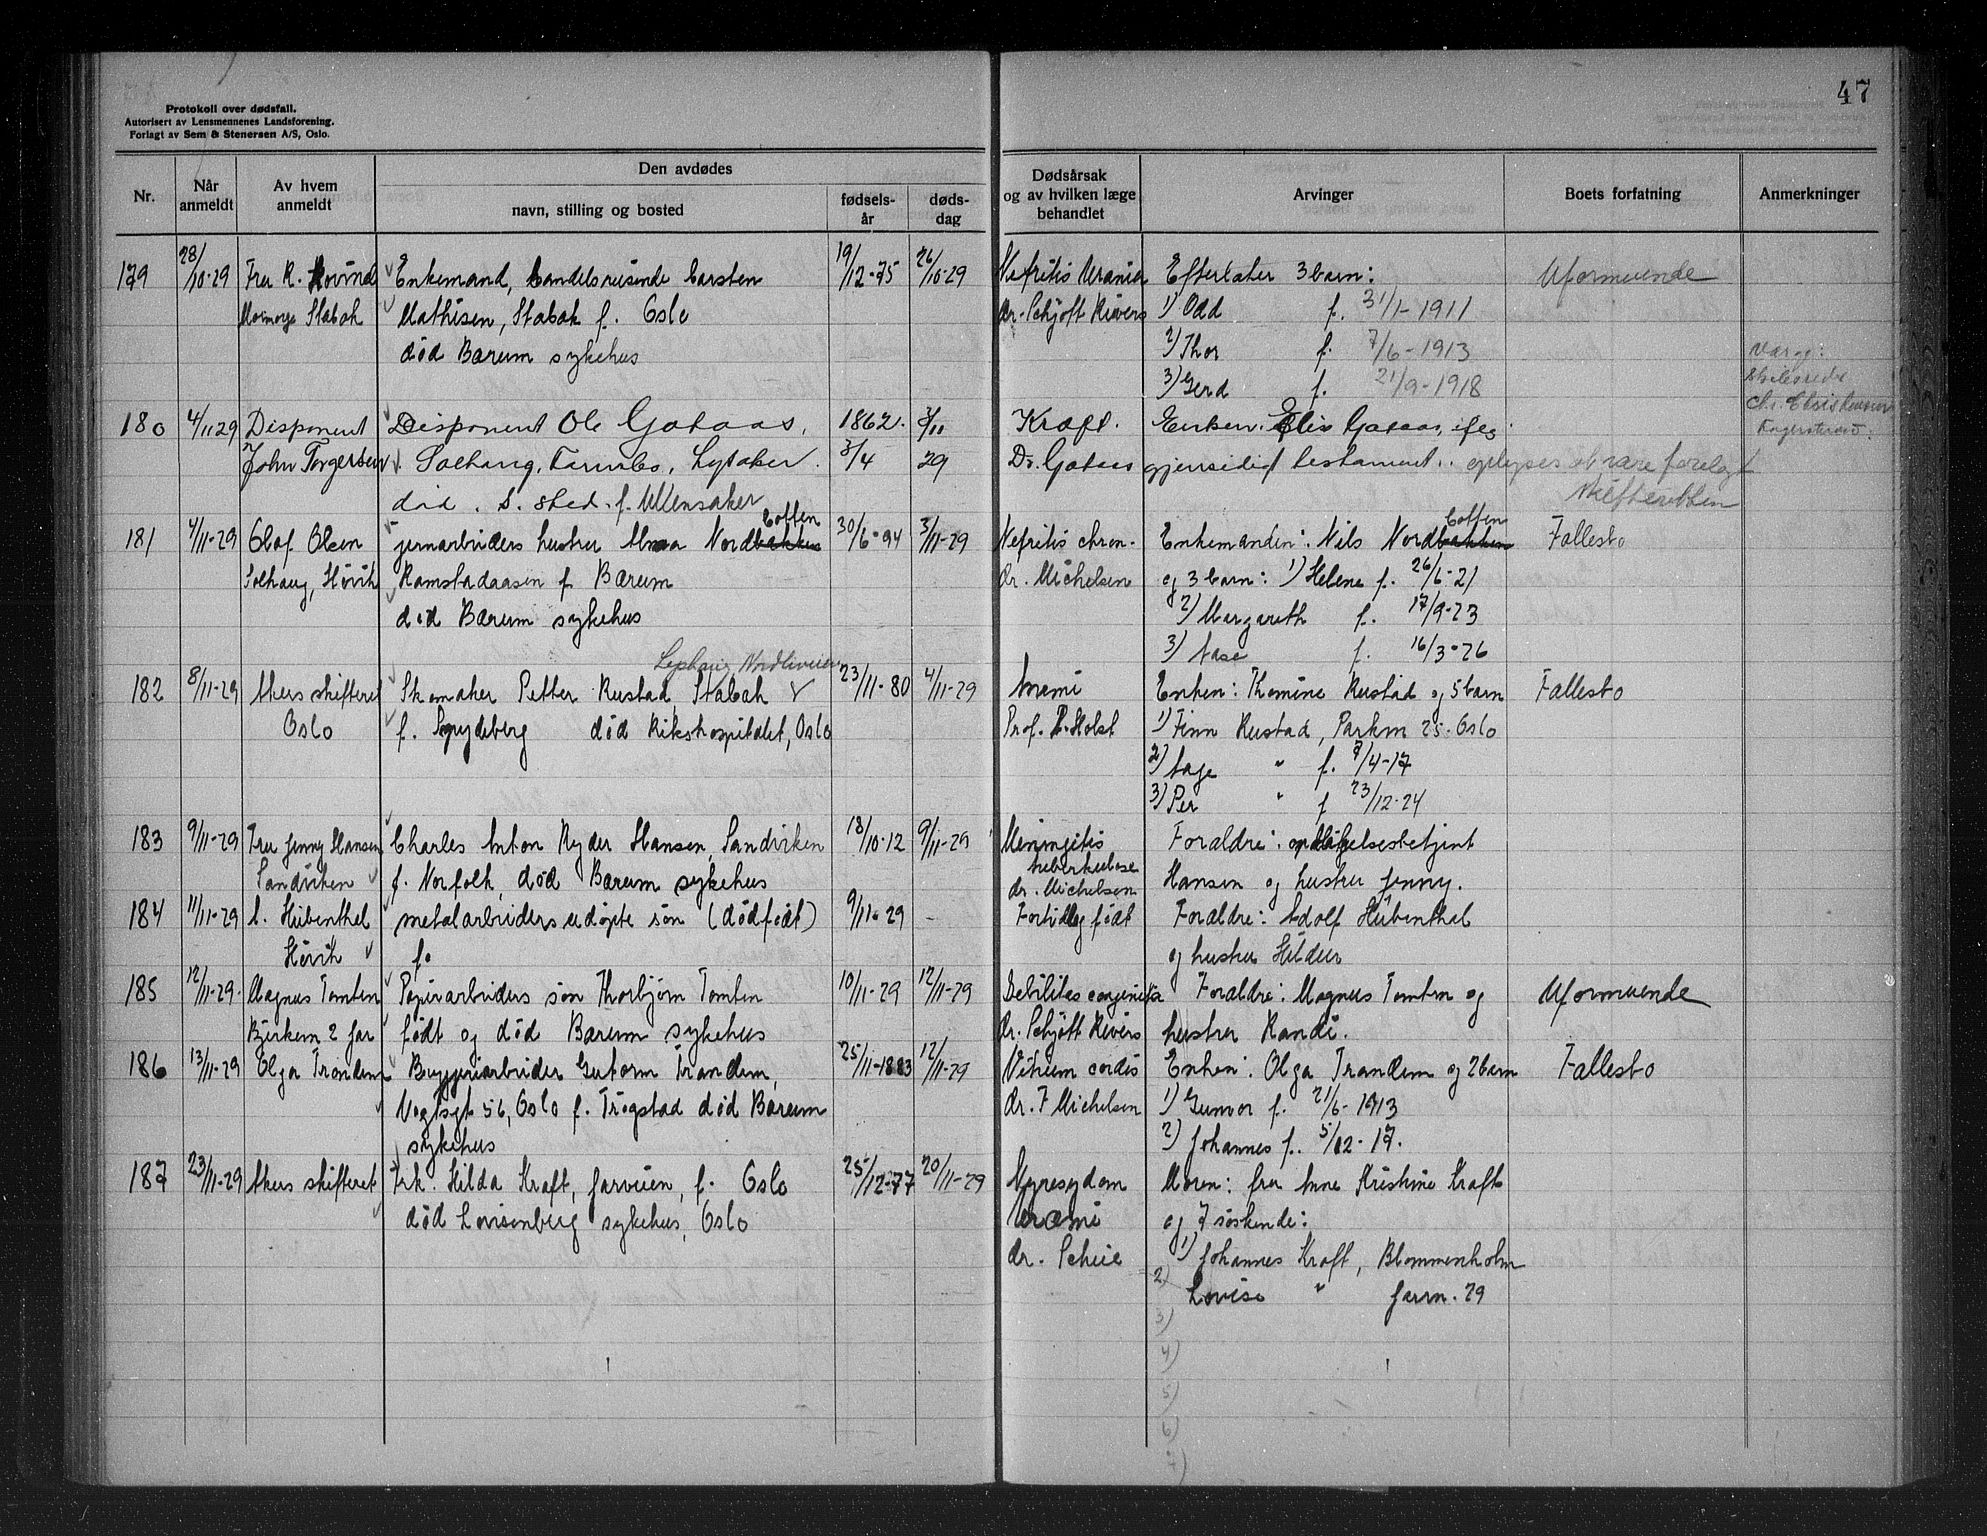 47
Protokoll over dødsfall.
Autorisert av Lensmennenes Landsforening.
Forlagt av Sem & Stenersen A/S, Oslo.
Nr.
Når anmeldt
Av hvem anmeldt
Den avdødes
navn, stilling og bosted
fødsels-år
døds-dag
Dødsårsak og av hvilken læge behandlet
Arvinger
Boets forfatning
Anmerkninger
179 28/10-29 Fru R. Hovind Enkemand, handelsreisende Carsten 19/12-75 26/10-29 Nefritis Urämia Efterlater 3 barn: Uformuende
Stabæk Mathisen, Stabæk f. Oslo dr. Schjøtt Rivers 1) Odd f. 31/1-1911
død Bærum sykehus 2) Thor f. 7/6-1913
3) Gerd f. 21/9-1918
180 4/11 29 Disponent Disponent Ole Gotaas, 1862. 3/11 Kræft. Enken: Gotaas, iflg.
John Torgersen Solhaug, Lysaker. 3/4 29 Dr. Gotaas gjensidig testament. oplyses at være forelagt
død s. sted. f. Ullensaker skifteretten
181 4/11-29 Olaf Olsen jernarbeiders hustru Anna Nordbakken 30/6-94 3/11-29 Nefritis chron. Enkemanden: Nils Nordbakken Fallesbo
Solhaug, Høvik Ramstadaasen f. Bærum dr. Michelsen og 3 barn: 1) Helene f. 26/6-21
død Bærum sykehus 2) Margareth f. 17/9-23
3) Aase f. 16/3-26
182 8/11-29 Akers skifteret Skomaker Petter Rustad, Stabæk 23/11-80 4/11-29 Anæmi Enken: Thomine Rustad og 5 barn Fallesbo
Oslo f. Spydeberg død Rikshospitalet, Oslo Prof. P. Holst 1) Finn Rustad, Parkvn 25. Oslo
2) Aage " f. 7/4-17
3) Per " f 23/12-24
183 9/11-29 Fru Jenny Hansen Charles Anton Ryder Hansen, Sandviken 18/10-12 9/11-29 Meningitis Forældre: opdagelsesbetjent
Sandviken f. Norfolk, død Bærum sykehus tuberkulose Hansen og hustru Jenny.
dr. Michelsen
184 11/11-29 A. Hübenthal metalarbeiders udøpte søn (dødfødt) 9/11-29 - Fortidlig født Forældre: Adolf Hübenthal
Høvik f. og hustru Hildur
185 12/11-29. Magnus Tomten Papirarbeiders søn Thorbjørn Tomten 10/11-29 12/11-29 Debilitas congenita Forældre: Magnus Tomten og Uformuende
Bjerkem 2 Jar født og død Bærum sykehus dr. Schjøtt Rivers hustru Randi.
186 13/11-29 Olga Trandem Bryggeriarbeider Gutorm Trandem, 25/11-1883 12/11-29 Vitium cordis Enken: Olga Trandem og 2 barn Fallesbo
Vogtsgt 56, Oslo f. Trøgstad død Bærum dr. F Michelsen 1) Gunvor f. 21/6-1913
sykehus 2) Johannes f. 5/12-17.
187 23/11-29 Akers skifteret Frk. Hilda Kraft, Jarveien, f. Oslo 25/12-77 20/11-29 Nyresygdom Moren: fru Anne Kristine Kraft
død Lovisenberg sykehus, Oslo Uræmi og 7 søskende:
dr. Scheie 1) Johannes Kraft, Blommenholm
2) Lovise " Jarvn. 29
3)
4)
5)
6)
7)